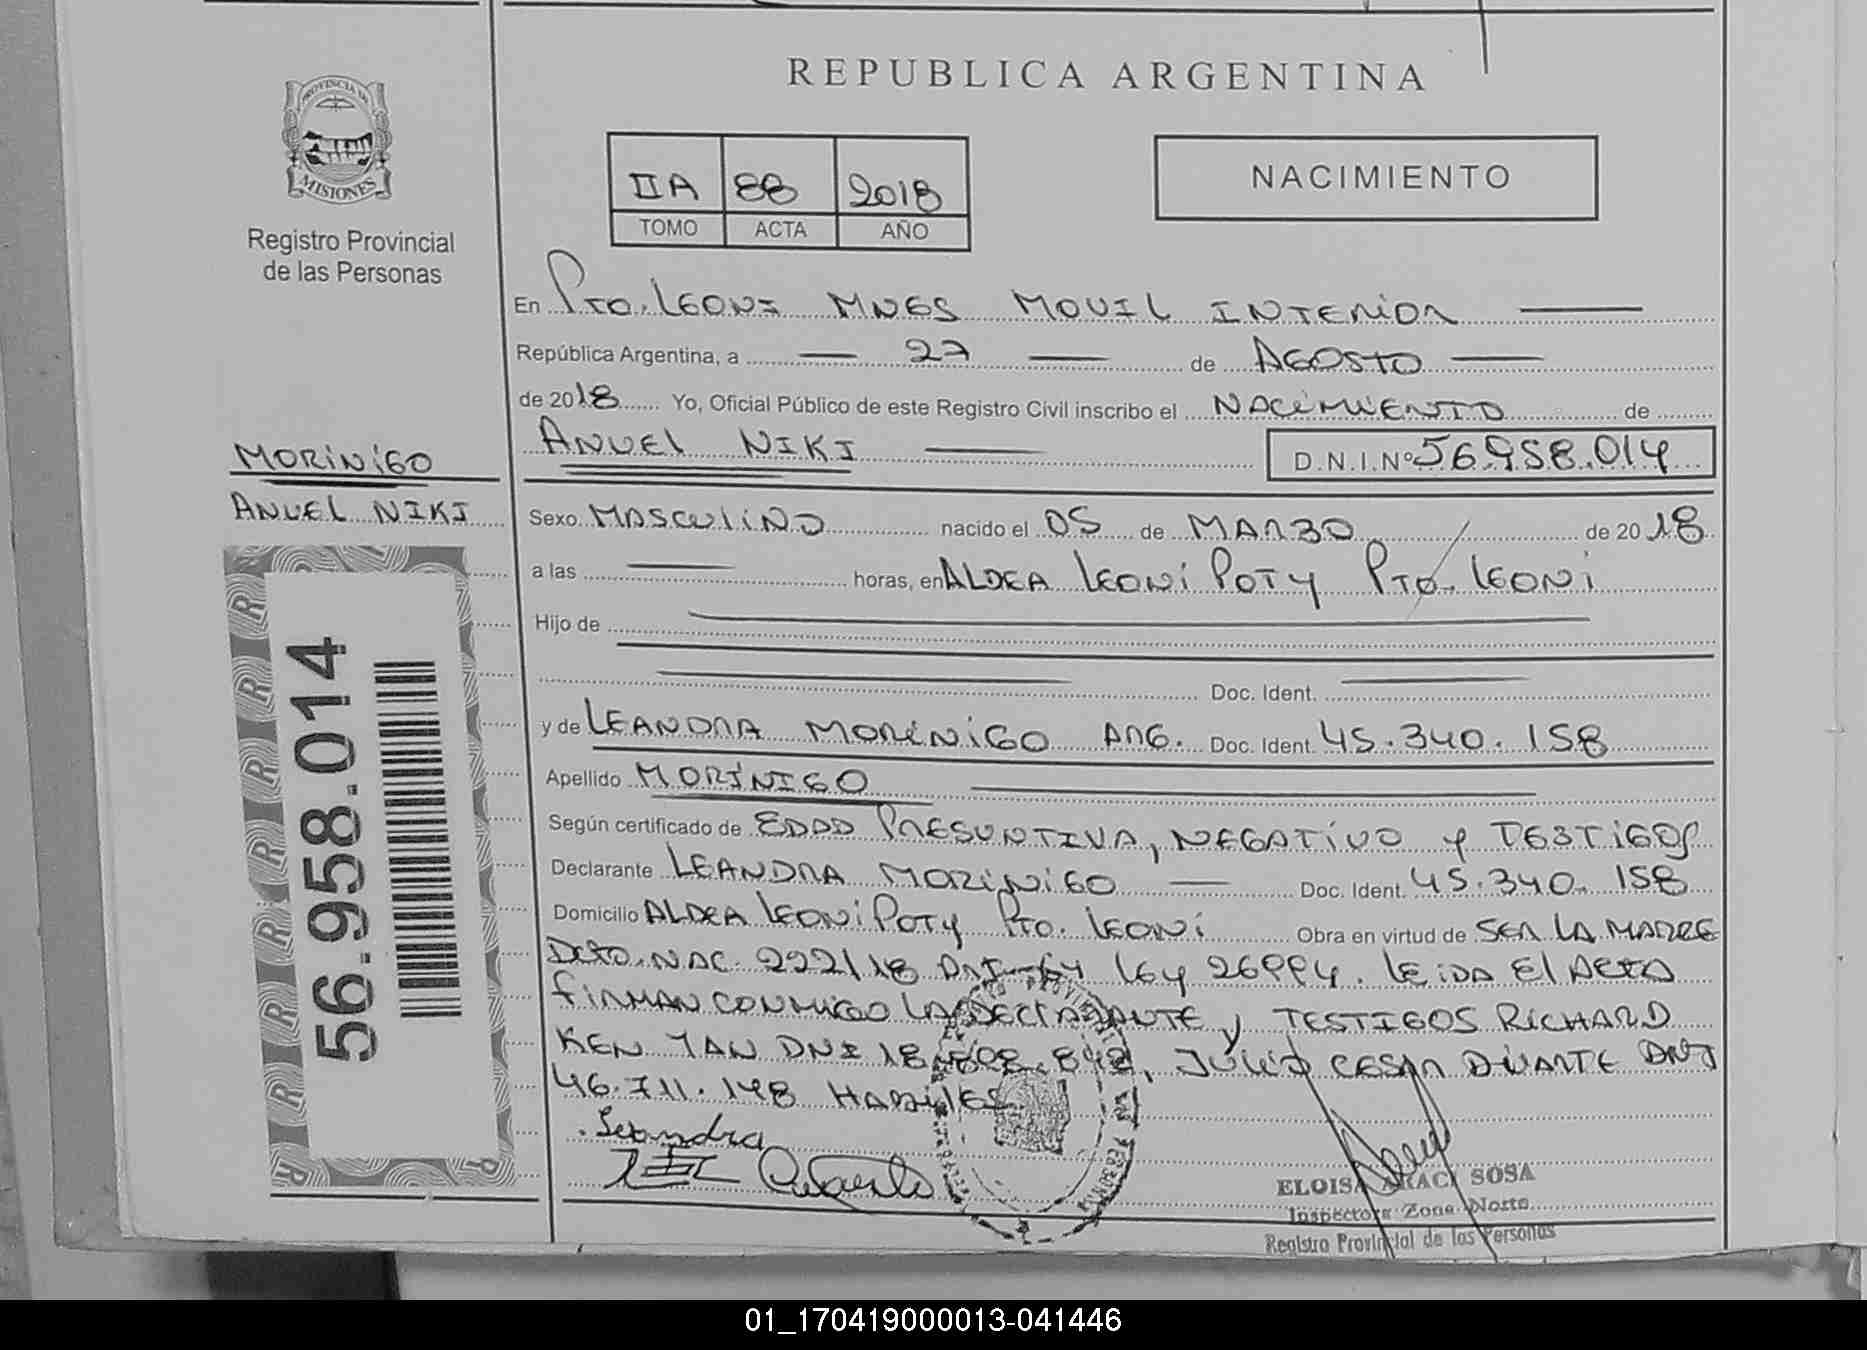 REPUBLICA ARGENTINA
PROVINCIA DE
MISIONES
Registro Provincial
de las Personas
IIA 88 2018
TOMO ACTA AÑO
NACIMIENTO
En Pto. Leoni MNES MOVIL INTERIOR
República Argentina, a 27 de AGOSTO
de 2018 Yo, Oficial Público de este Registro Civil inscribo el NACIMIENTO de
ANUEL NIKI D.N.I.Nº 56.958.014
MORINIGO
ANUEL NIKI
Sexo MASCULINO nacido el 05 de MARZO de 2018
a las horas, en ALDEA LEONI POTY Pto. LEONI
Hijo de
Doc. Ident.
y de LEANDRA MORINIGO ARG. Doc. Ident. 45.340.158
Apellido MORINIGO
Según certificado de EDAD PRESUNTIVA, NEGATIVO y TESTIGOS
Declarante LEANDRA MORINIGO Doc. Ident. 45.340.158
Domicilio ALDEA LEONI POTY Pto. LEONI Obra en virtud de SER LA MADRE
Dcto. NAC. 222/18 LEY 26994. LEIDA EL ACTA
FIRMAN CONMIGO LA DECLARANTE y TESTIGOS RICHARD
KEN YAN DNI JULIO CESAR DUARTE DNI
46.711.148 HABILES
Leandra
Duarte
ELOISA ARACI SOSA
Inspectora Zona Norte
Registro Provincial de las Personas
56.958.014
01_170419000013-041446